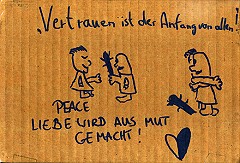 „Vertrauen ist der Anfang von allen..."
PEACE
LIEBE WIRD AUS MUT
GEMACHT!